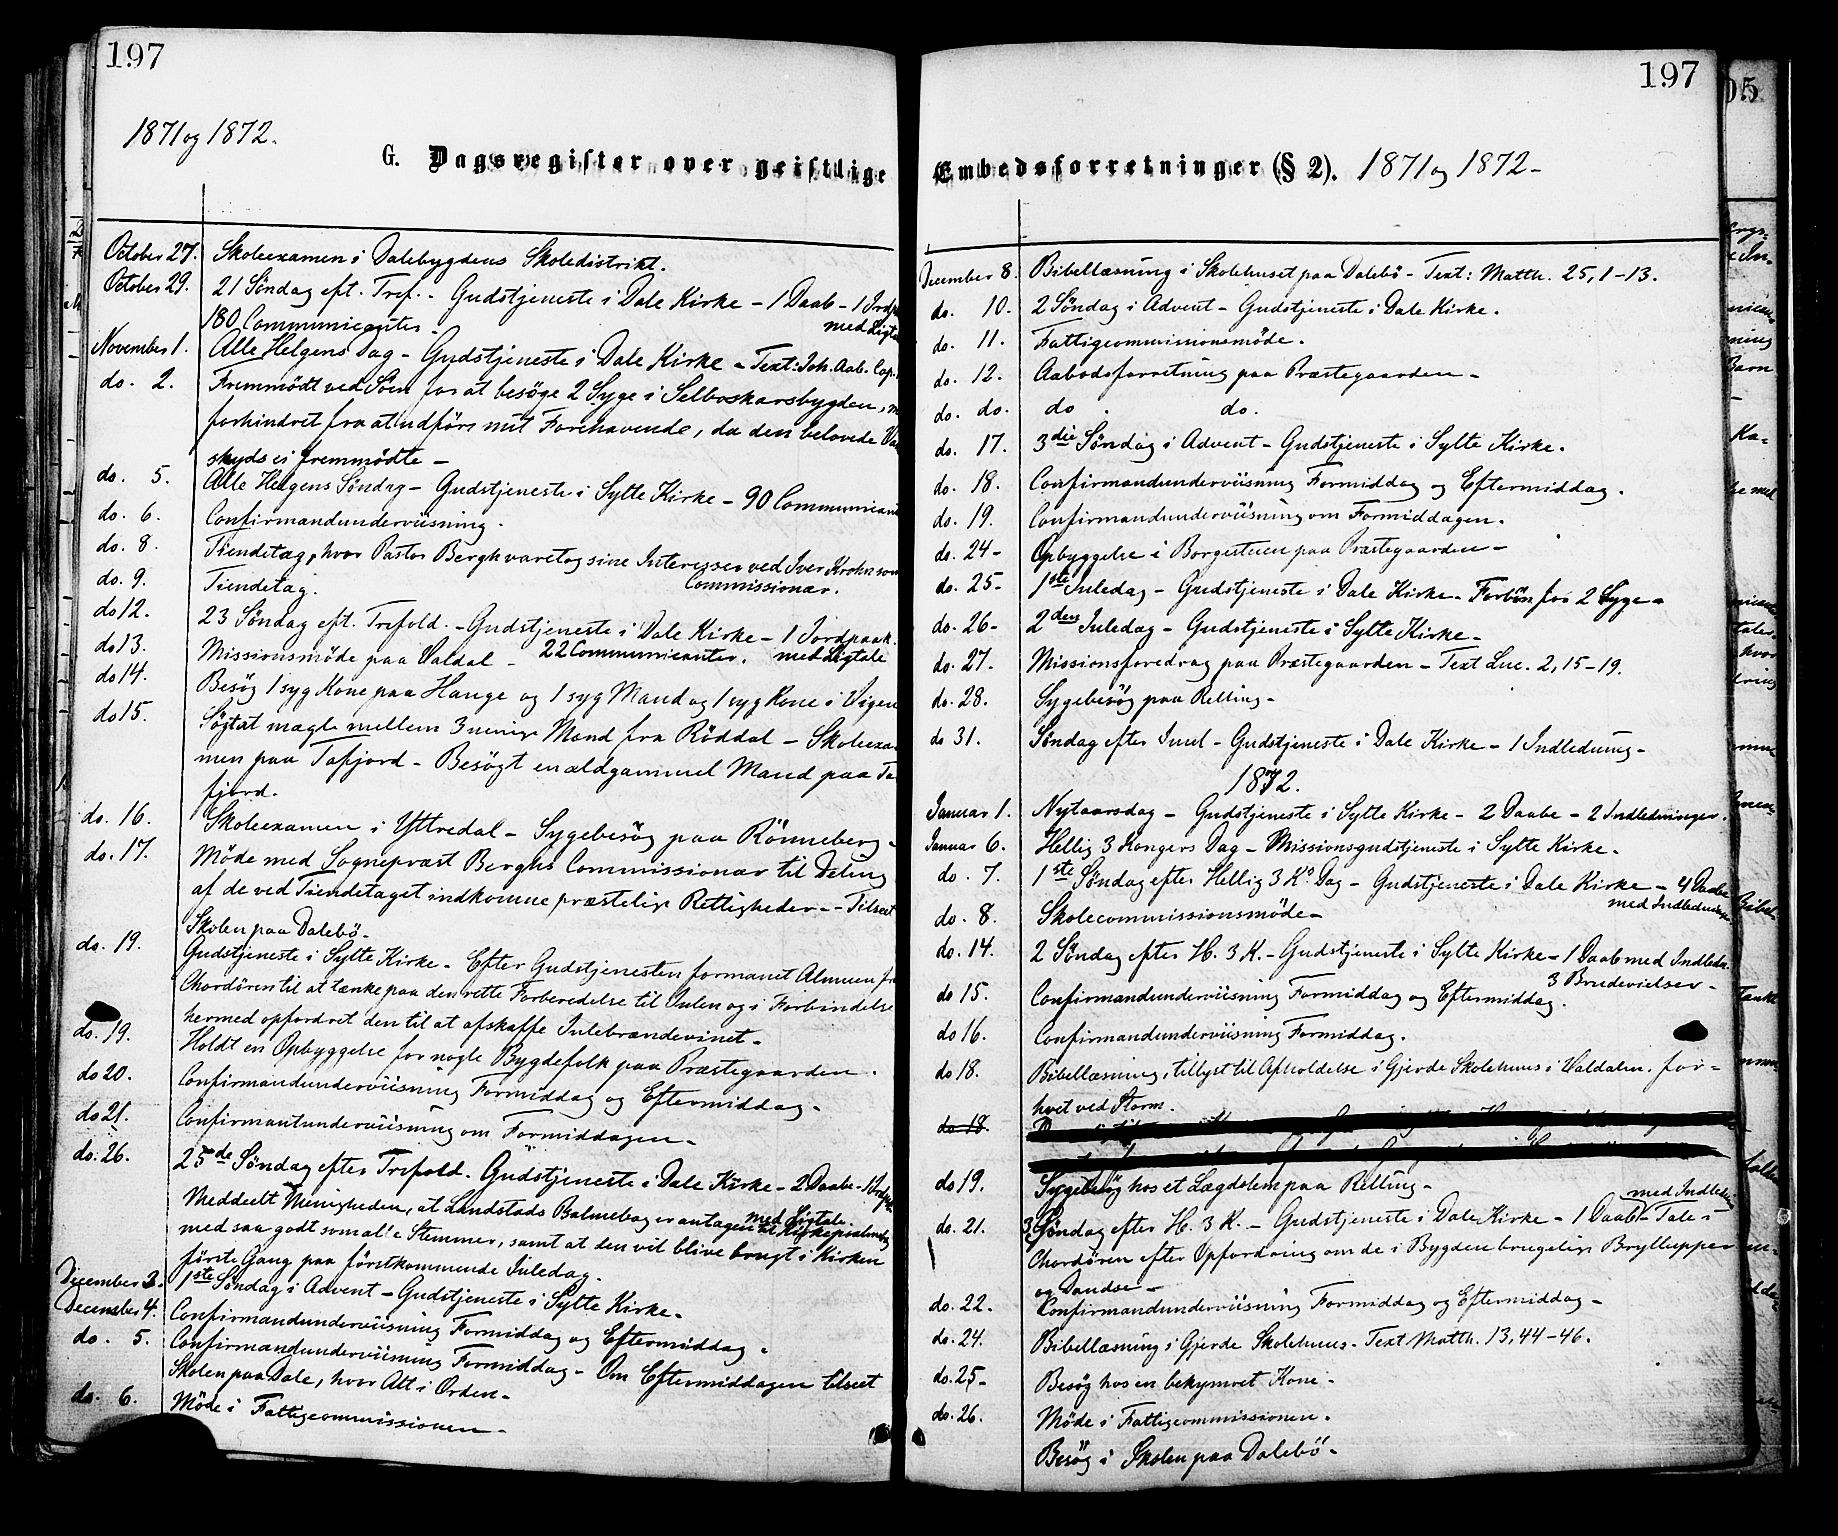 197
1871 og 1872.
G. Dagsregister over geistlige
October 27. Skoleexamen i Dalebygdens Skoledistrikt.
October 29. 21 Söndag eft. Tref. - Gudstjeneste i Dale Kirke - 1 Daab - 1 Jordp
180 Communicanter - med Ligta
November 1. Alle Helgens Dag - Gudstjeneste i Dale Kirke - Text: Joh. Aab. Cap.
do. 2. Fremmödt ved Söen for at besöge 2 Syge i Selboskarsbygden, m
forhindret fra at udföre mit Forehavende, da den belovede
skyds ei fremmödte -
do. 5. Alle Helgens Söndag - Gudstjeneste i Sylte Kirke - 90 Communican
do. 6. Confirmandunderviisning.
do. 8. Tiendetag, hvor Pastor Bergh varetog sine Interesser ved Iver Krohn som
Commissionær.
do. 9. Tiendetag.
do 12. 23 Söndag eft. Trefold. - Gudstjeneste i Dale Kirke - 1 Jordpaak.
22 Communicanter. med Ligtale
do 13. Missionsmöde paa Valdal -
do 14. Besög 1 syg Kone paa Hauge og 1 syg Mand og 1 syg Kone i Vigen
do 15. Sögt at mægle mellem 3 uenige Mænd fra Röddal - Skoleexa-
men paa Tafjord - Besögt en ældgammel Mand paa Ta-
fjord.
do. 16. Skoleexamen i Yttredal - Sygebesög paa Rönneberg -
do. 17. Möde med Sognepræst Berghs Commissionær til Deling
af de ved Tiendetaget indkomne præstelige Rettigheder - - Tilseet
Skolen paa Dalebö -
do. 19. Gudstjeneste i Sylte Kirke - Efter Gudstjenesten formanet Almuen fr
Chordören til at tænke paa den rette Forberedelse til Julen og i Forbindelse
hermed opfordret den til at afskaffe Julebrændevinet -
do. 19. Holdt en Opbyggelse for nogle Bygdefolk paa Præstegaarden.
do 20. Confirmandunderviisning Formiddag og Eftermiddag -
do 21. Confirmantunderviisning om Formiddagen -
do: 26. 25de Söndag efter Trefold. Gudstjeneste i Dale Kirke - 2 Daabe - 1 Jordp
med Ligtale.
Meddeelt Menigheden, at Landstads Salmebog er antagen til Kirkepsalmebog
med saa godt som alle Stemmer, samt at den vil blive brugt i Kirken
förste Gang paa förstkommende Juledag.
December 3. 1ste Söndag i Advent - Gudstjeneste i Sylte Kirke -
December 4. Confirmandunderviisning Formiddag og Eftermiddag -
do. 5. Confirmandunderviisning Formiddag - Om Eftermiddagen tilseet
Skolen paa Dale, hvor Alt i Orden -
do. 6. Möde i Fattigcommissionen -
197
Embedsforretninger (§ 2). 1871 og 1872 -
December 8. Bibellæsning i Skolehuset paa Dalebö - Text: Matth. 25, 1-13.
do. 10. 2 Söndag i Advent - Gudstjeneste i Dale Kirke.
do. 11. Fattigcommissionsmöde.
do. 12. Aabodsforretning paa Præstegaarden -
do. do. do. do.
do. 17. 3die Söndag i Advent - Gudstjeneste i Sylte Kirke.
do. 18. Confirmandunderviisning Formiddag og Eftermiddag.
do. 19. Confirmandunderviisning om Formiddagen.
do. 24 - Opbyggelse i Borgestuen paa Præstegaarden -
do. 25 - 1ste Juledag - Gudstjeneste i Dale Kirke - Forbön for 2 Syge -
do. 26 - 2den Juledag - Gudstjeneste i Sylte Kirke -
do. 27. Missionsforedrag paa Præstegaarden - Text Luc. 2, 15-19.
do. 28. Sygebesög paa Relling -
do 31. Söndag efter Juul - Gudstjeneste i Dale Kirke - 1 Indledning -
1872.
Januar 1. Nytaarsdag - Gudstjeneste i Sylte Kirke - 2 Daabe - 2 Indledninger.
Januar 6. Hellig 3 Kongers Dag - Missionsgudstjeneste i Sylte Kirke -
do. 7. 1ste Söndag efter Hellig 3 Ks Dag - Gudstjeneste i Dale Kirke - 4 Daabe
med Indledninger
do. 8. Skolecommissionsmöde -
do. 14. 2 Söndag efter H. 3 K. - Gudstjeneste i Sylte Kirke - 1 Daab med Indledn.
3 Brudevielser -
do 15. Confirmandunderviisning Formiddag og Eftermiddag.
do 16. Confirmandunderviisning Formiddag.
do 18. Bibellæsning, tillyst til Afholdelse i Gjerde Skolehuus i Valdalen, for-
hvet ved Storm.
do 18.
do 19. Sygebesög hos et Lægdslem paa Relling -
med Indledn
do. 21. 3 Söndag efter H. 3 K. - Gudstjeneste i Dale Kirke - 1 Daab - Tale i
Chordören efter Opfordring om de i Bygden brugelige Brylluper
og Dandse -
do. 22. Confirmandunderviisning Formiddag og Eftermiddag -
do. 24. Bibellæsning i Gjerde Skolehuus - Text Matth. 13, 44-46.
do. 25 - Besög hos en bekymret Kone -
do. 26. Möde i Fattigcommissionen.
Besög i Skolen paa Dalebö -